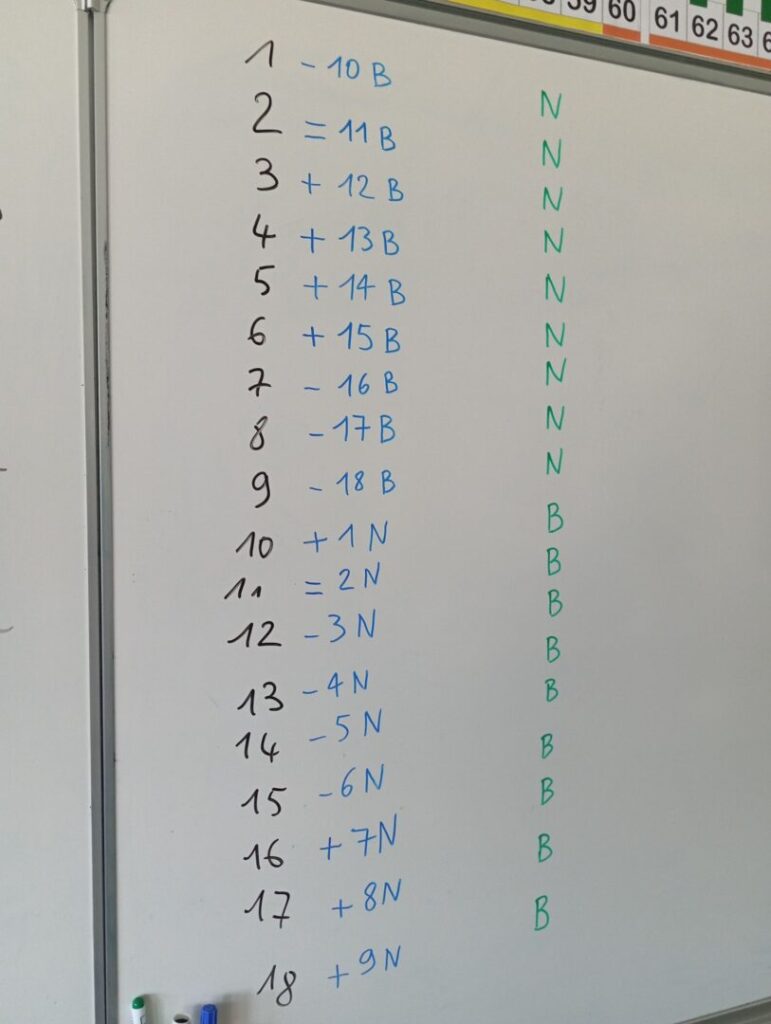 59 60 61 62 63
1 - 10 B N
2 = 11 B N
3 + 12 B N
4 + 13 B N
5 + 14 B N
6 + 15 B N
7 - 16 B N
8 - 17 B N
9 - 18 B N
10 + 1 N B
11 = 2 N B
12 - 3 N B
13 - 4 N B
14 - 5 N B
15 - 6 N B
16 + 7 N B
17 + 8 N B
18 + 9 N B